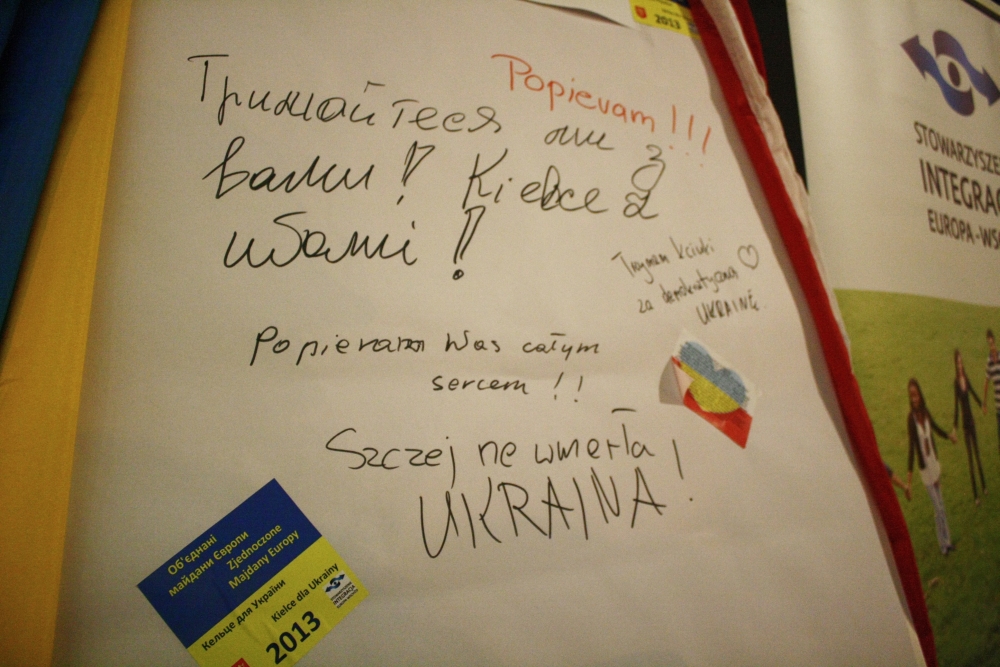 2013
Popieram!!!
Тримайтеся ми з
вами! Kielce z
Wami!
Trzymam kciuki
za demokratyczną
UKRAINĘ
Popieram Was całym
sercem!!
Szczej ne wmerła
UKRAINA!
Об'єднані
майдани Європи
Zjednoczone
Majdany Europy
Кельце для України
Kielce dla Ukrainy
2013
INTEGRACJA
STOWARZYSZE
INTEGRAC
EUROPA-WSC